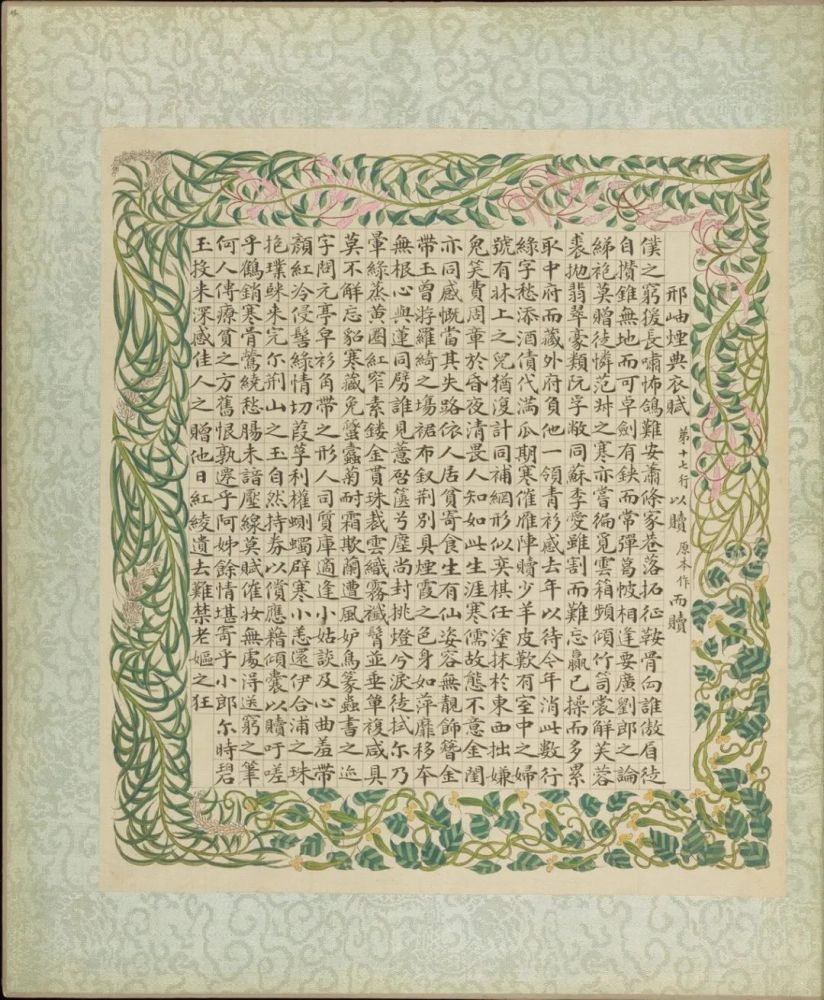 邢岫煙典衣賦 第十七行以贖 原本作而贖
僕之窮後長嘯怖鴿難安蕭條家巷落拓征鞍骨向誰傲眉徒
自攢錐無地而可卓劍有鋏而常彈葛帔相逢要廣劉郎之論
綈袍莫贈徒憐范叔之寒亦嘗徧覓雲箱頻傾竹笥裳解芙蓉
裘拋翡翠豪類阮孚敝同蘇季愛雖割而難忘贏已操而多累
取中府而藏外府負他一領青衫感去年以待今年消此數行
綠字愁添酒債代滿瓜期寒催雁陣贖少羊皮歎有室中之婦
號有牀上之兒猶復計同補網形似奕棋任塗抹於東西拙嫌
兒笑費周章於昏夜清畏人知如此生涯寒儒故態不意金閨
亦同感慨當其失路依人居貧寄食生有仙姿容無靚飾簪金
帶玉曾將羅綺之塲裙布釵荆別具煙霞之色身如萍靡移本
無根心與蓮同劈誰見薏啓篋兮塵尚封挑燈兮淚徒拭尔乃
暈綠蒸黄圈紅窄素鏤金貫珠裁雲織霧襳髾並垂單複咸具
莫不解忘貂寒藏免蠹蠹菊耐霜欺蘭遭風妒鳥篆蟲書之迹
字問元亭皁衫角帶之形人司質庫適逢小姑談及心曲羞帶
顏紅冷侵鬢綠情切葭莩利權蝍蠋辟寒小恙還伊合浦之珠
抱璞歸来完尔荆山之玉自然持券以償應藉傾囊以贖吁嗟
乎鶴銷寒骨鶯繞愁腸未諳壓線莫賦催妝無處淂送窮之筆
何人傳療貧之方舊恨孰還乎阿姊餘情堪寄乎小郎尔時碧
玉投来深感佳人之贈他日紅綾遺去難禁老嫗之狂